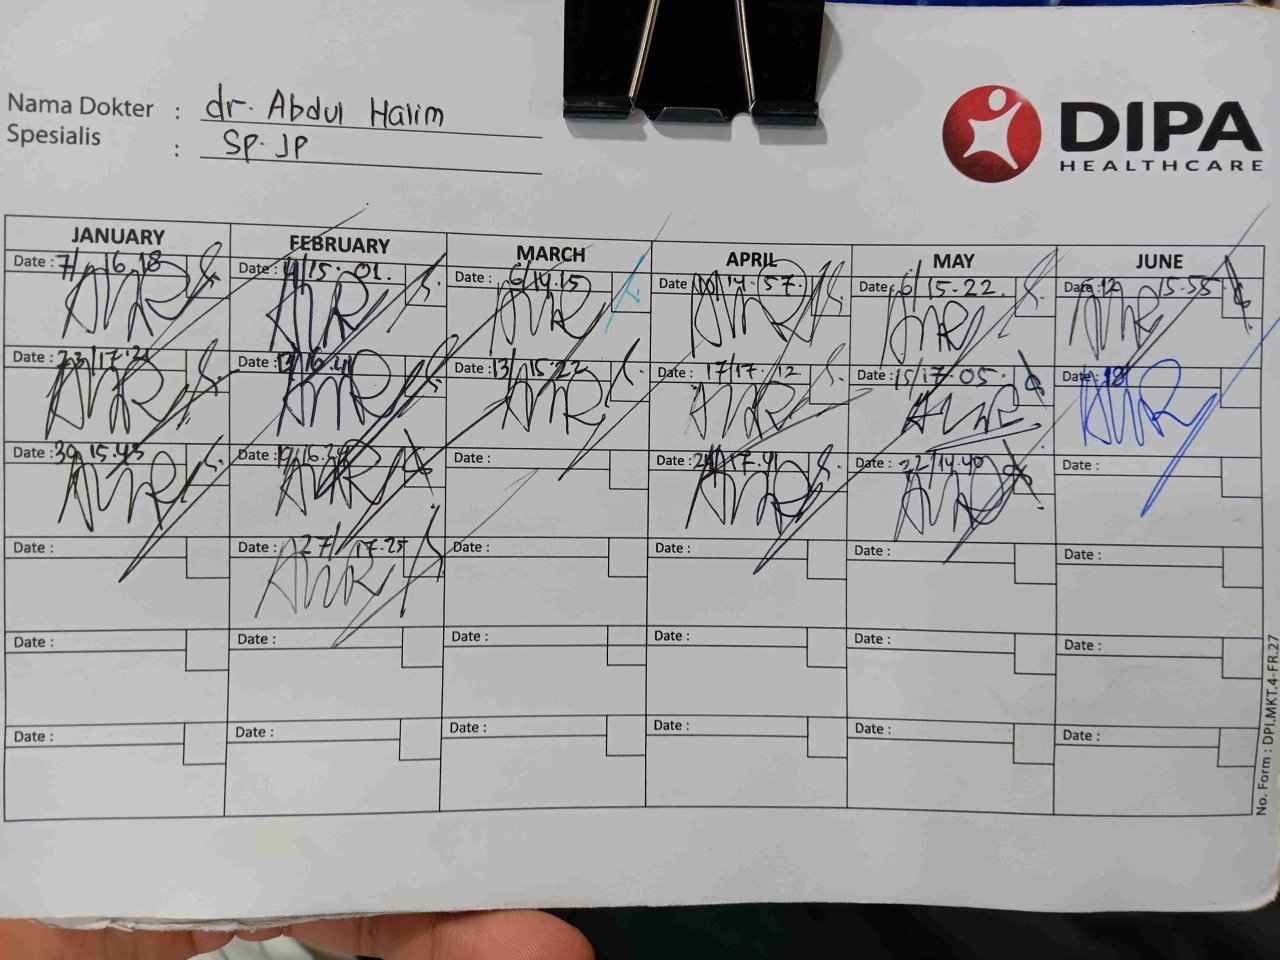 Nama Dokter : dr. Abdul Halim
Spesialis : Sp. JP
DIPA
HEALTHCARE
JANUARY FEBRUARY MARCH APRIL MAY JUNE
Date : 7/ 16.18 Date : 4/15.01. Date : 6/14.15 Date 14.57. Date : 6/15.22. Date : 12 15.55
Date : 23/17.21 Date : 13/16.41 Date : 13/ 15.22 Date : 17/17.12 Date : 15/17.05. Date : 18/
Date : 30 15.43 Date : 19/16.39 Date : Date : 24/17.41 Date : 22/14.40 Date :
Date : Date : 27/ 17.25 Date : Date : Date : Date :
Date : Date : Date : Date : Date : Date :
Date : Date : Date : Date : Date : Date :
No. Form : DPI.MKT.4-FR.27